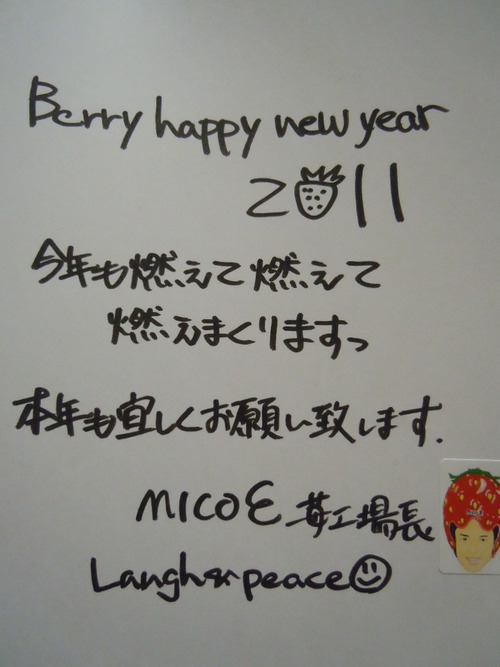 Berry happy new year
2011
今年も燃えて燃えて
燃えまくりますっ
本年も宜しくお願い致します.
MICOε 苺工場長
Laugh&peace